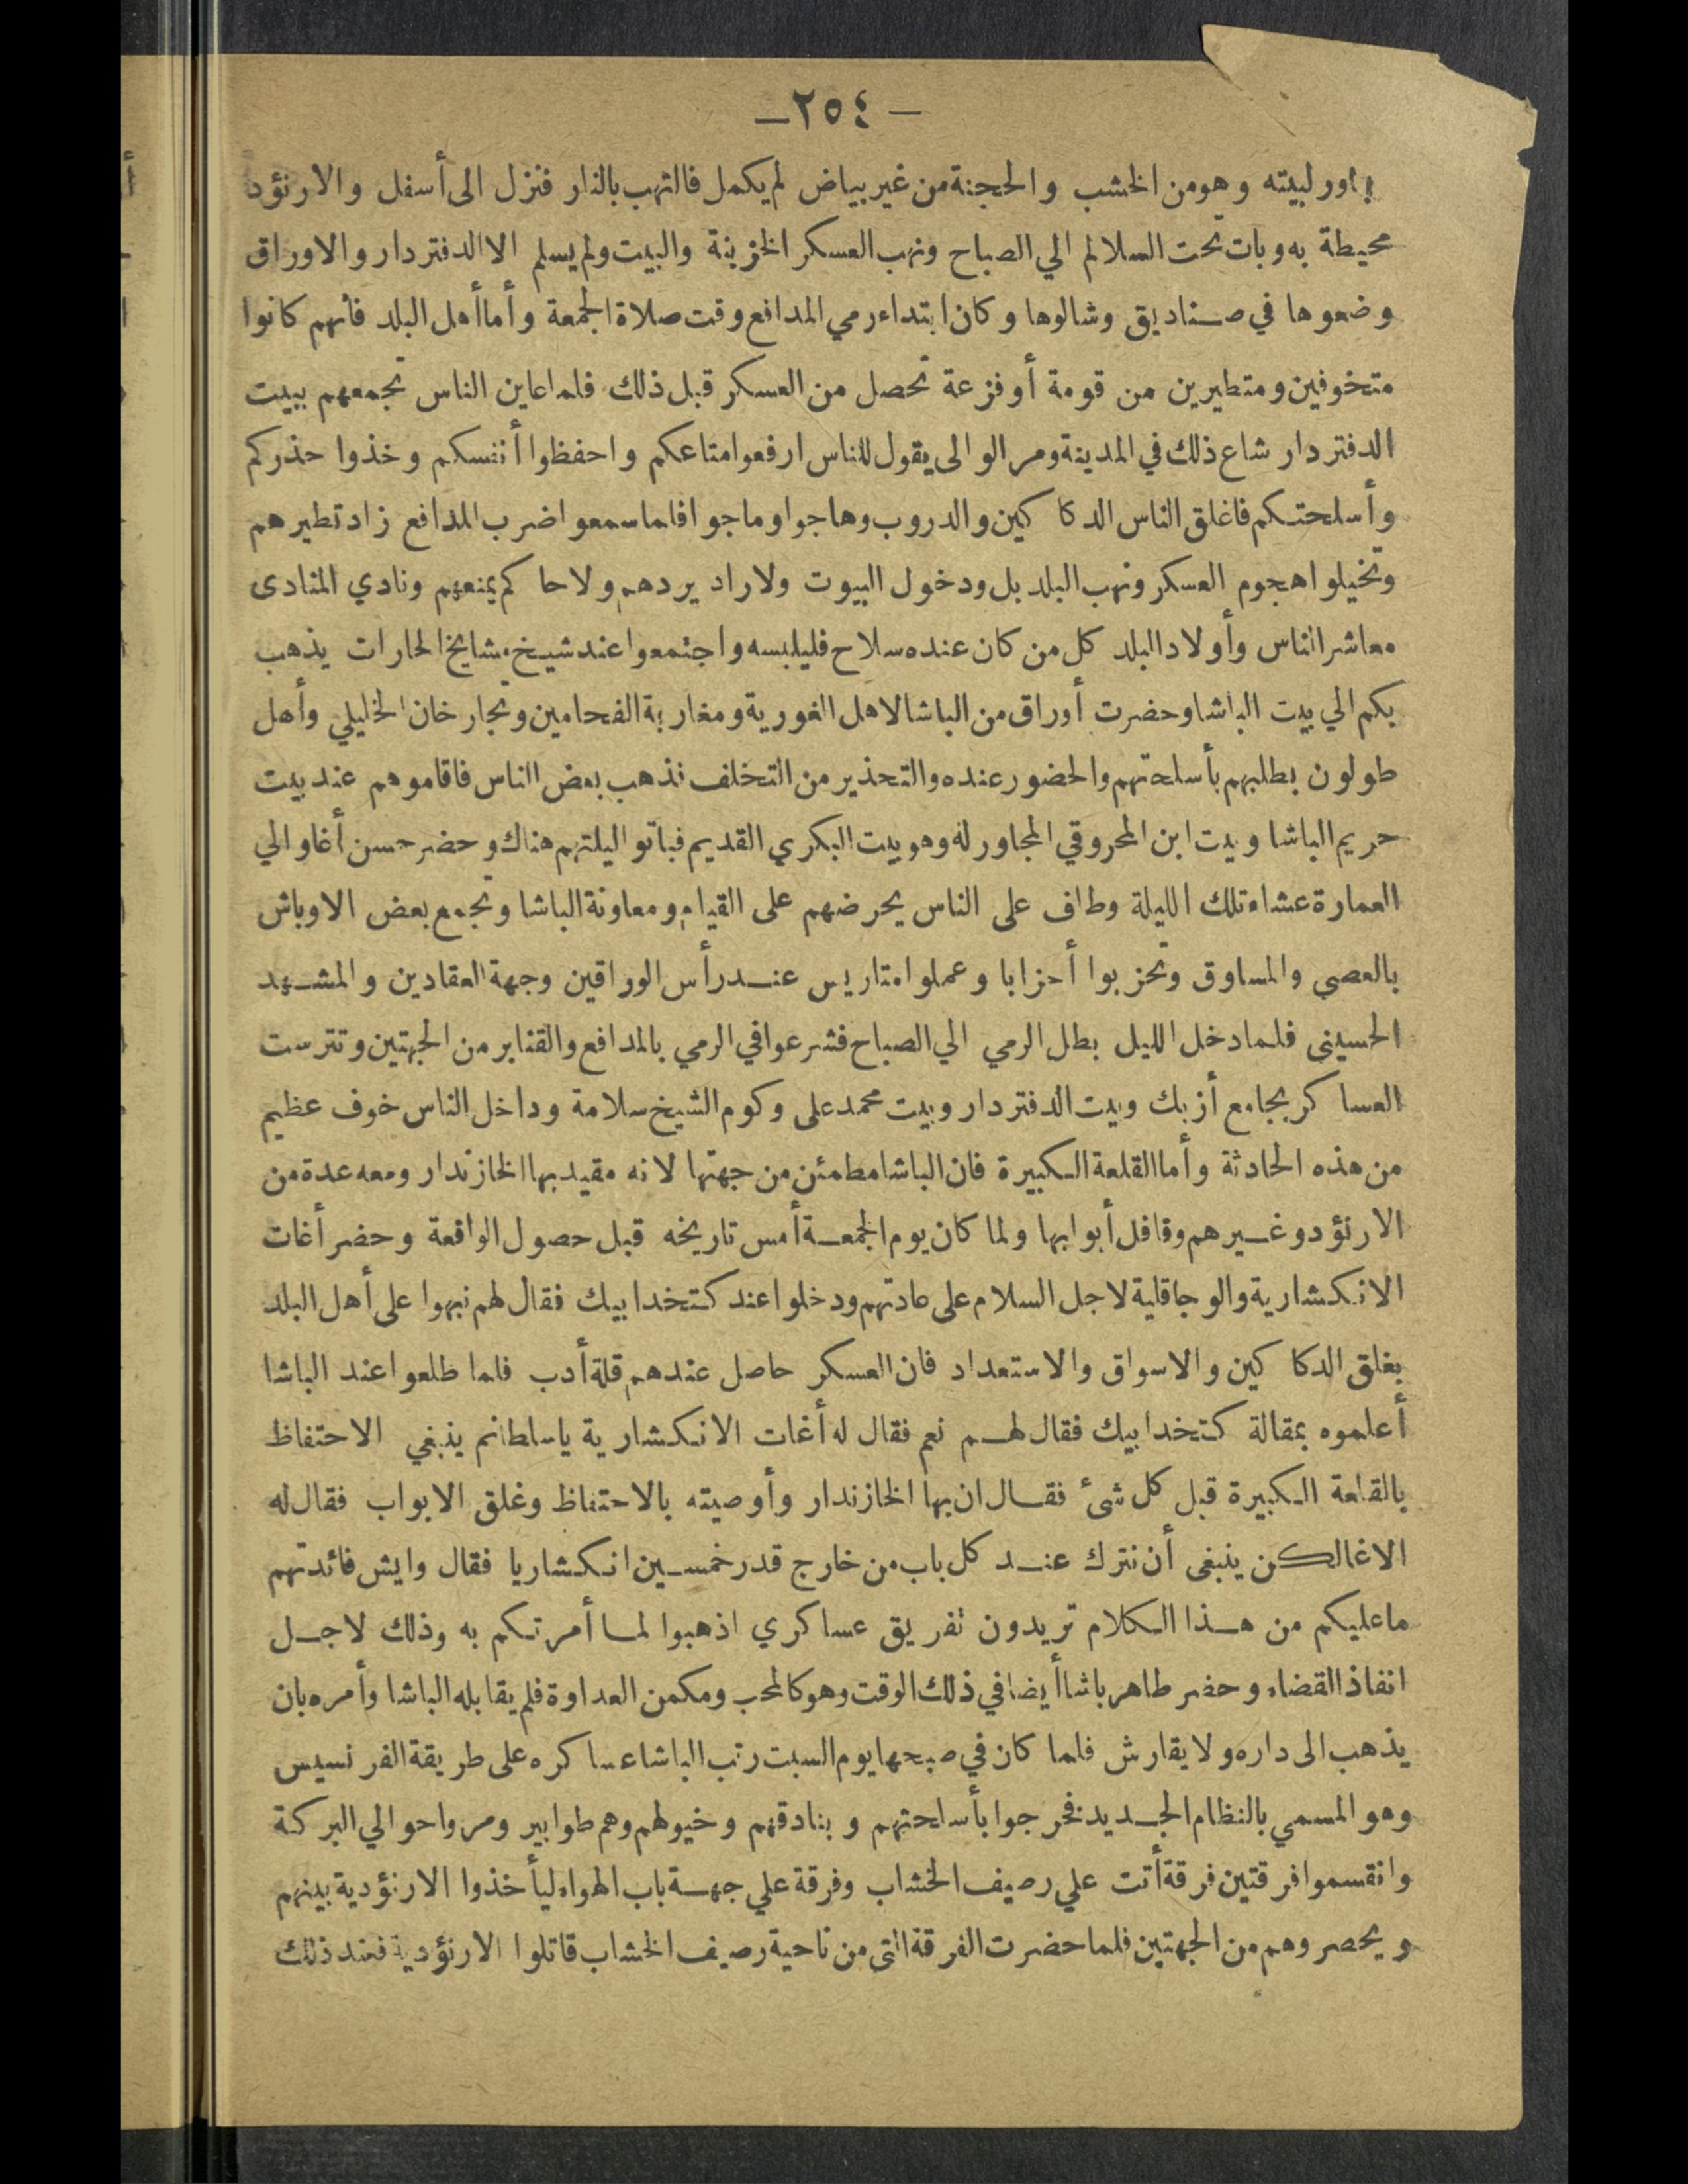 — ٢٥٤ —
مجاور لبيته وهو من الخشب والحجنة من غير بياض لم يكمل فالتهب بالنار فنزل الى أسفل والارنؤد
محيطة به وبات تحت السلالم الي الصباح ونهب العسكر الخزينة والبيت ولم يسلم الا الدفتردار والاوراق
وضعوها في صناديق وشالوها وكان ابتداء رمي المدافع وقت صلاة الجمعة وأما أهل البلد فانهم كانوا
متخوفين ومتطيرين من قومة أو فزعة تحصل من العسكر قبل ذلك فلما عاين الناس تجمعهم ببيت
الدفتردار شاع ذلك في المدينة ومر الوالى يقول للناس ارفعوا متاعكم واحفظوا أنفسكم وخذوا حذركم
وأسلحتكم فاغلق الناس الدكاكين والدروب وهاجوا وماجوا فلما سمعوا ضرب المدافع زاد تطيرهم
وتخيلوا هجوم العسكر ونهب البلد بل ودخول البيوت ولا راد يردهم ولا حاكم يمنعهم ونادي المنادى
معاشر الناس وأولاد البلد كل من كان عنده سلاح فليلبسه واجتمعوا عند شيخ مشايخ الحارات يذهب
بكم الي بيت الباشا وحضرت أوراق من الباشا لاهل الغورية ومغاربة الفحامين وتجار خان الخليلي وأهل
طولون بطلبهم بأسلحتهم والحضور عنده والتحذير من التخلف فذهب بعض الناس فاقاموهم عند بيت
حريم الباشا وبيت ابن المحروقي المجاور له وهو بيت البكري القديم فباتوا ليلتهم هناك وحضر حسن أغا والي
العمارة عشاء تلك الليلة وطاف على الناس يحرضهم على القيام ومعاونة الباشا وتجمع بعض الاوباش
بالعصي والمساوق وتحزبوا أحزابا وعملوا متاريس عند رأس الوراقين وجهة العقادين والمشهد
الحسينى فلما دخل الليل بطل الرمي الي الصباح فشرعوا في الرمي بالمدافع والقنابر من الجهتين وتترست
العساكر بجامع أزبك وبيت الدفتردار وبيت محمد على وكوم الشيخ سلامة وداخل الناس خوف عظيم
من هذه الحادثة وأما القلعة الكبيرة فان الباشا مطمئن من جهتها لانه مقيد بها الخازندار ومعه عدة من
الارنؤد وغيرهم وقافل أبوابها ولما كان يوم الجمعة أمس تاريخه قبل حصول الواقعة وحضر أغات
الانكشارية والوجاقلية لاجل السلام على عادتهم ودخلوا عند كتخدا بيك فقال لهم نبهوا على أهل البلد
بغلق الدكاكين والاسواق والاستعداد فان العسكر حاصل عندهم قلة أدب فلما طلعوا عند الباشا
أعلموه بمقالة كتخدا بيك فقال لهم نعم فقال له أغات الانكشارية ياسلطانم ينبغي الاحتفاظ
بالقلعة الكبيرة قبل كل شئ فقال ان بها الخازندار وأوصيته بالاحتفاظ وغلق الابواب فقال له
الاغا لكن ينبغى أن نترك عند كل باب من خارج قدر خمسين انكشاريا فقال وايش فائدتهم
ما عليكم من هذا الكلام تريدون تفريق عساكري اذهبوا لما أمرتكم به وذلك لاجل
انفاذ القضاء وحضر طاهر باشا أيضا في ذلك الوقت وهو كالمحب ومكمن العداوة فلم يقابله الباشا وأمره بان
يذهب الى داره ولا يقارش فلما كان في صبحها يوم السبت رتب الباشا عساكره على طريقة الفرنسيس
وهو المسمي بالنظام الجديد فخرجوا بأسلحتهم وبنادقهم وخيولهم وهم طوابير ومروا حوالي البركة
وانقسموا فرقتين فرقة أتت علي رصيف الخشاب وفرقة علي جهة باب الهواء ليأخذوا الارنؤدية بينهم
ويحصروهم من الجهتين فلما حضرت الفرقة التى من ناحية رصيف الخشاب قاتلوا الارنؤدية فعند ذلك